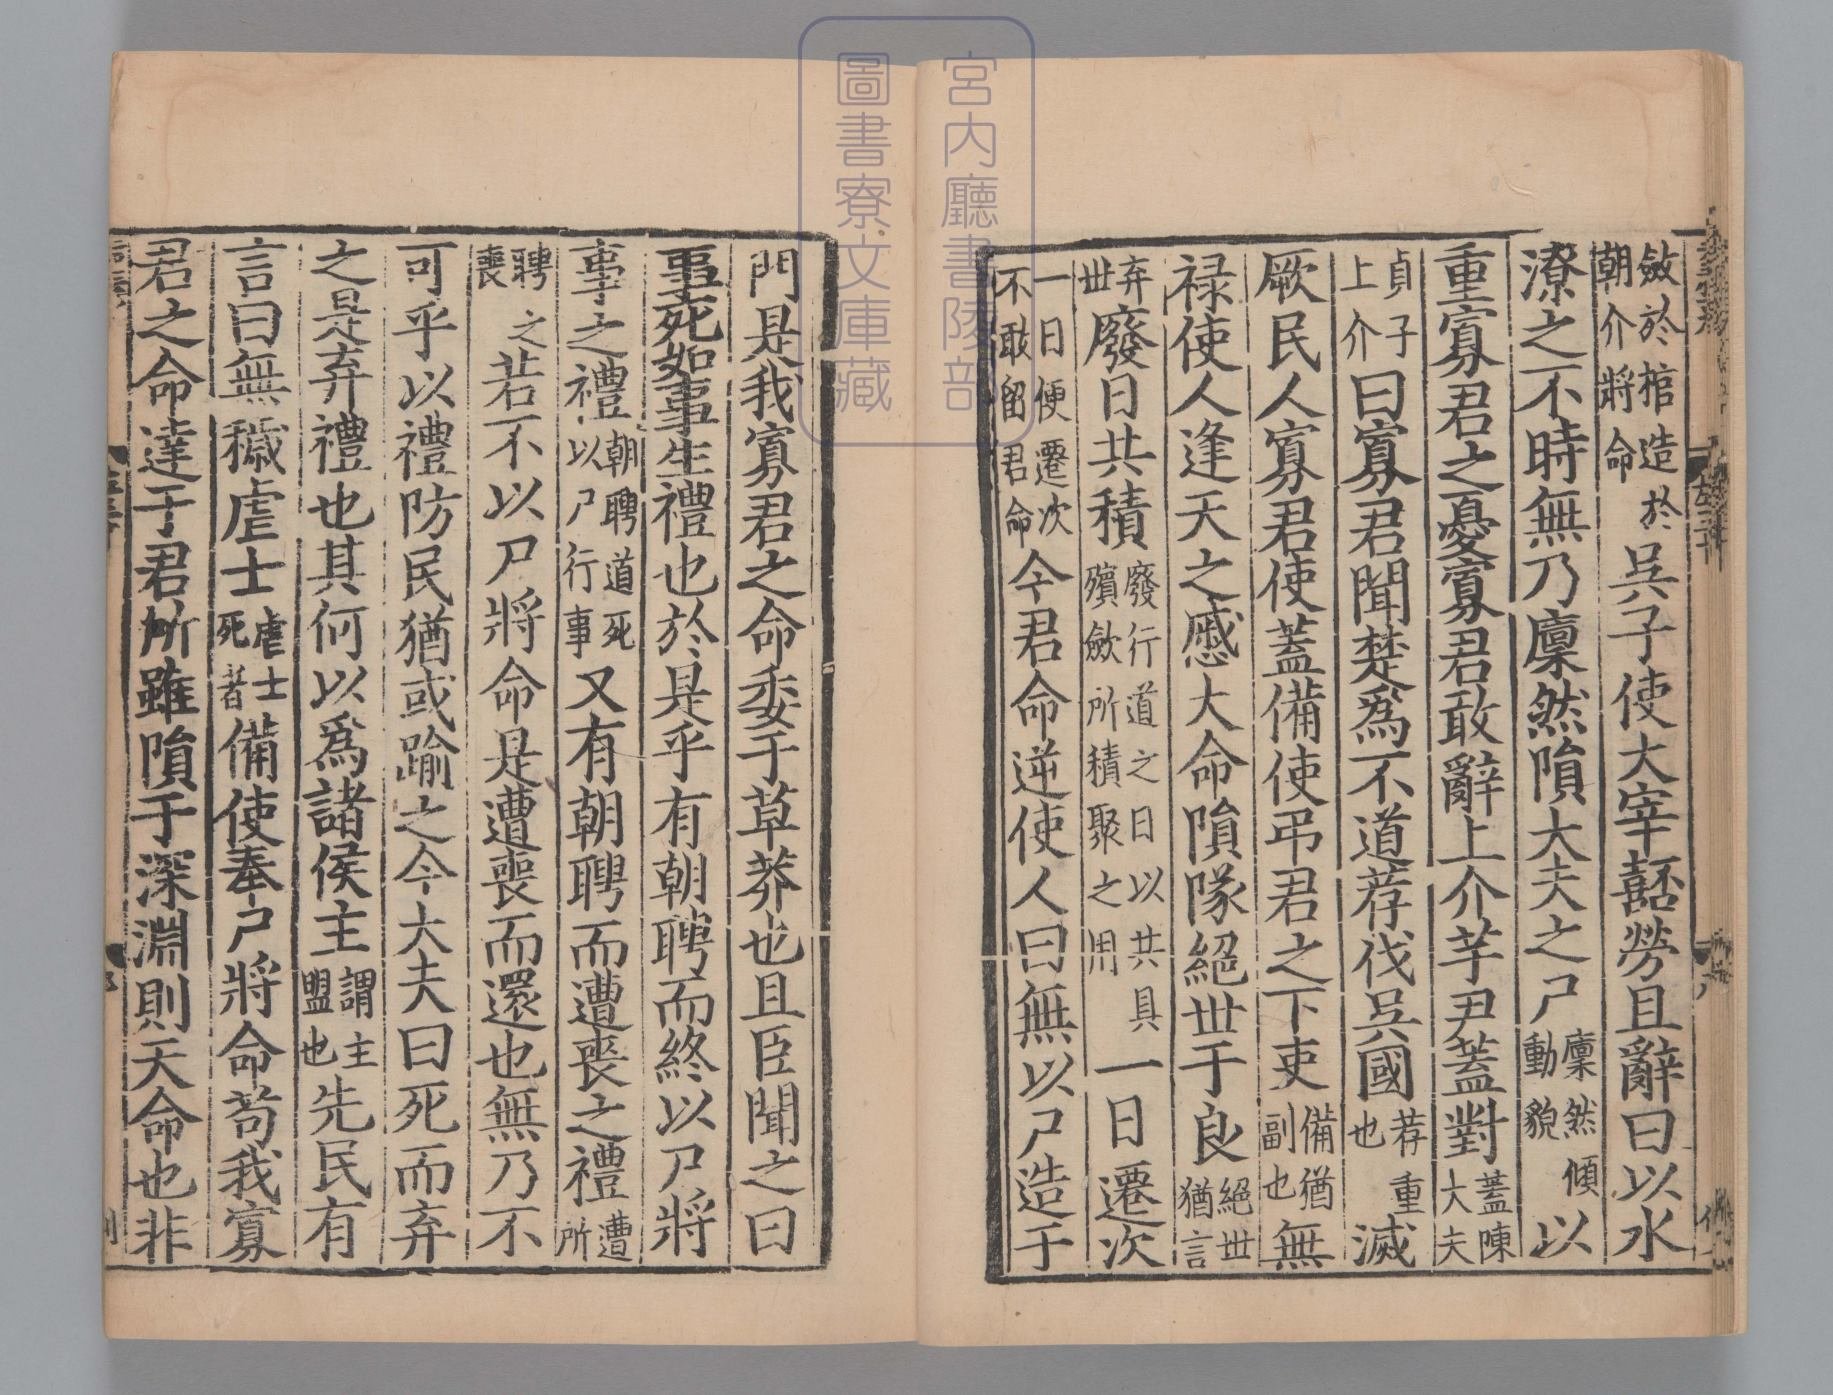 斂於棺造於朝介將命吳子使大宰嚭勞且辭曰以水
潦之不時無乃廩然隕大夫之尸廩然傾動貌以
重寡君之憂寡君敢辭上介芋尹蓋對蓋陳大夫
貞子上介曰寡君聞楚爲不道荐伐吳國荐重也滅
厥民人寡君使蓋備使弔君之下吏備猶副也無
禄使人逢天之慼大命隕隊絕世于良絕世猶言
弃世廢日共積廢行道之日以共具殯斂所積聚之用一日遷次
一日便遷次不敢留君命今君命逆使人曰無以尸造于
門是我寡君之命委于草莽也且臣聞之曰
事死如事生禮也於是乎有朝聘而終以尸將
事之禮朝聘道死以尸行事又有朝聘而遭喪之禮遭所
聘之喪若不以尸將命是遭喪而還也無乃不
可乎以禮防民猶或踰之今大夫曰死而弃
之是弃禮也其何以爲諸侯主謂主盟也先民有
言曰無穢虐士虐士死者備使奉尸將命苟我寡
君之命達于君所雖隕于深淵則天命也非
宮内廳書陵部
圖書寮文庫藏